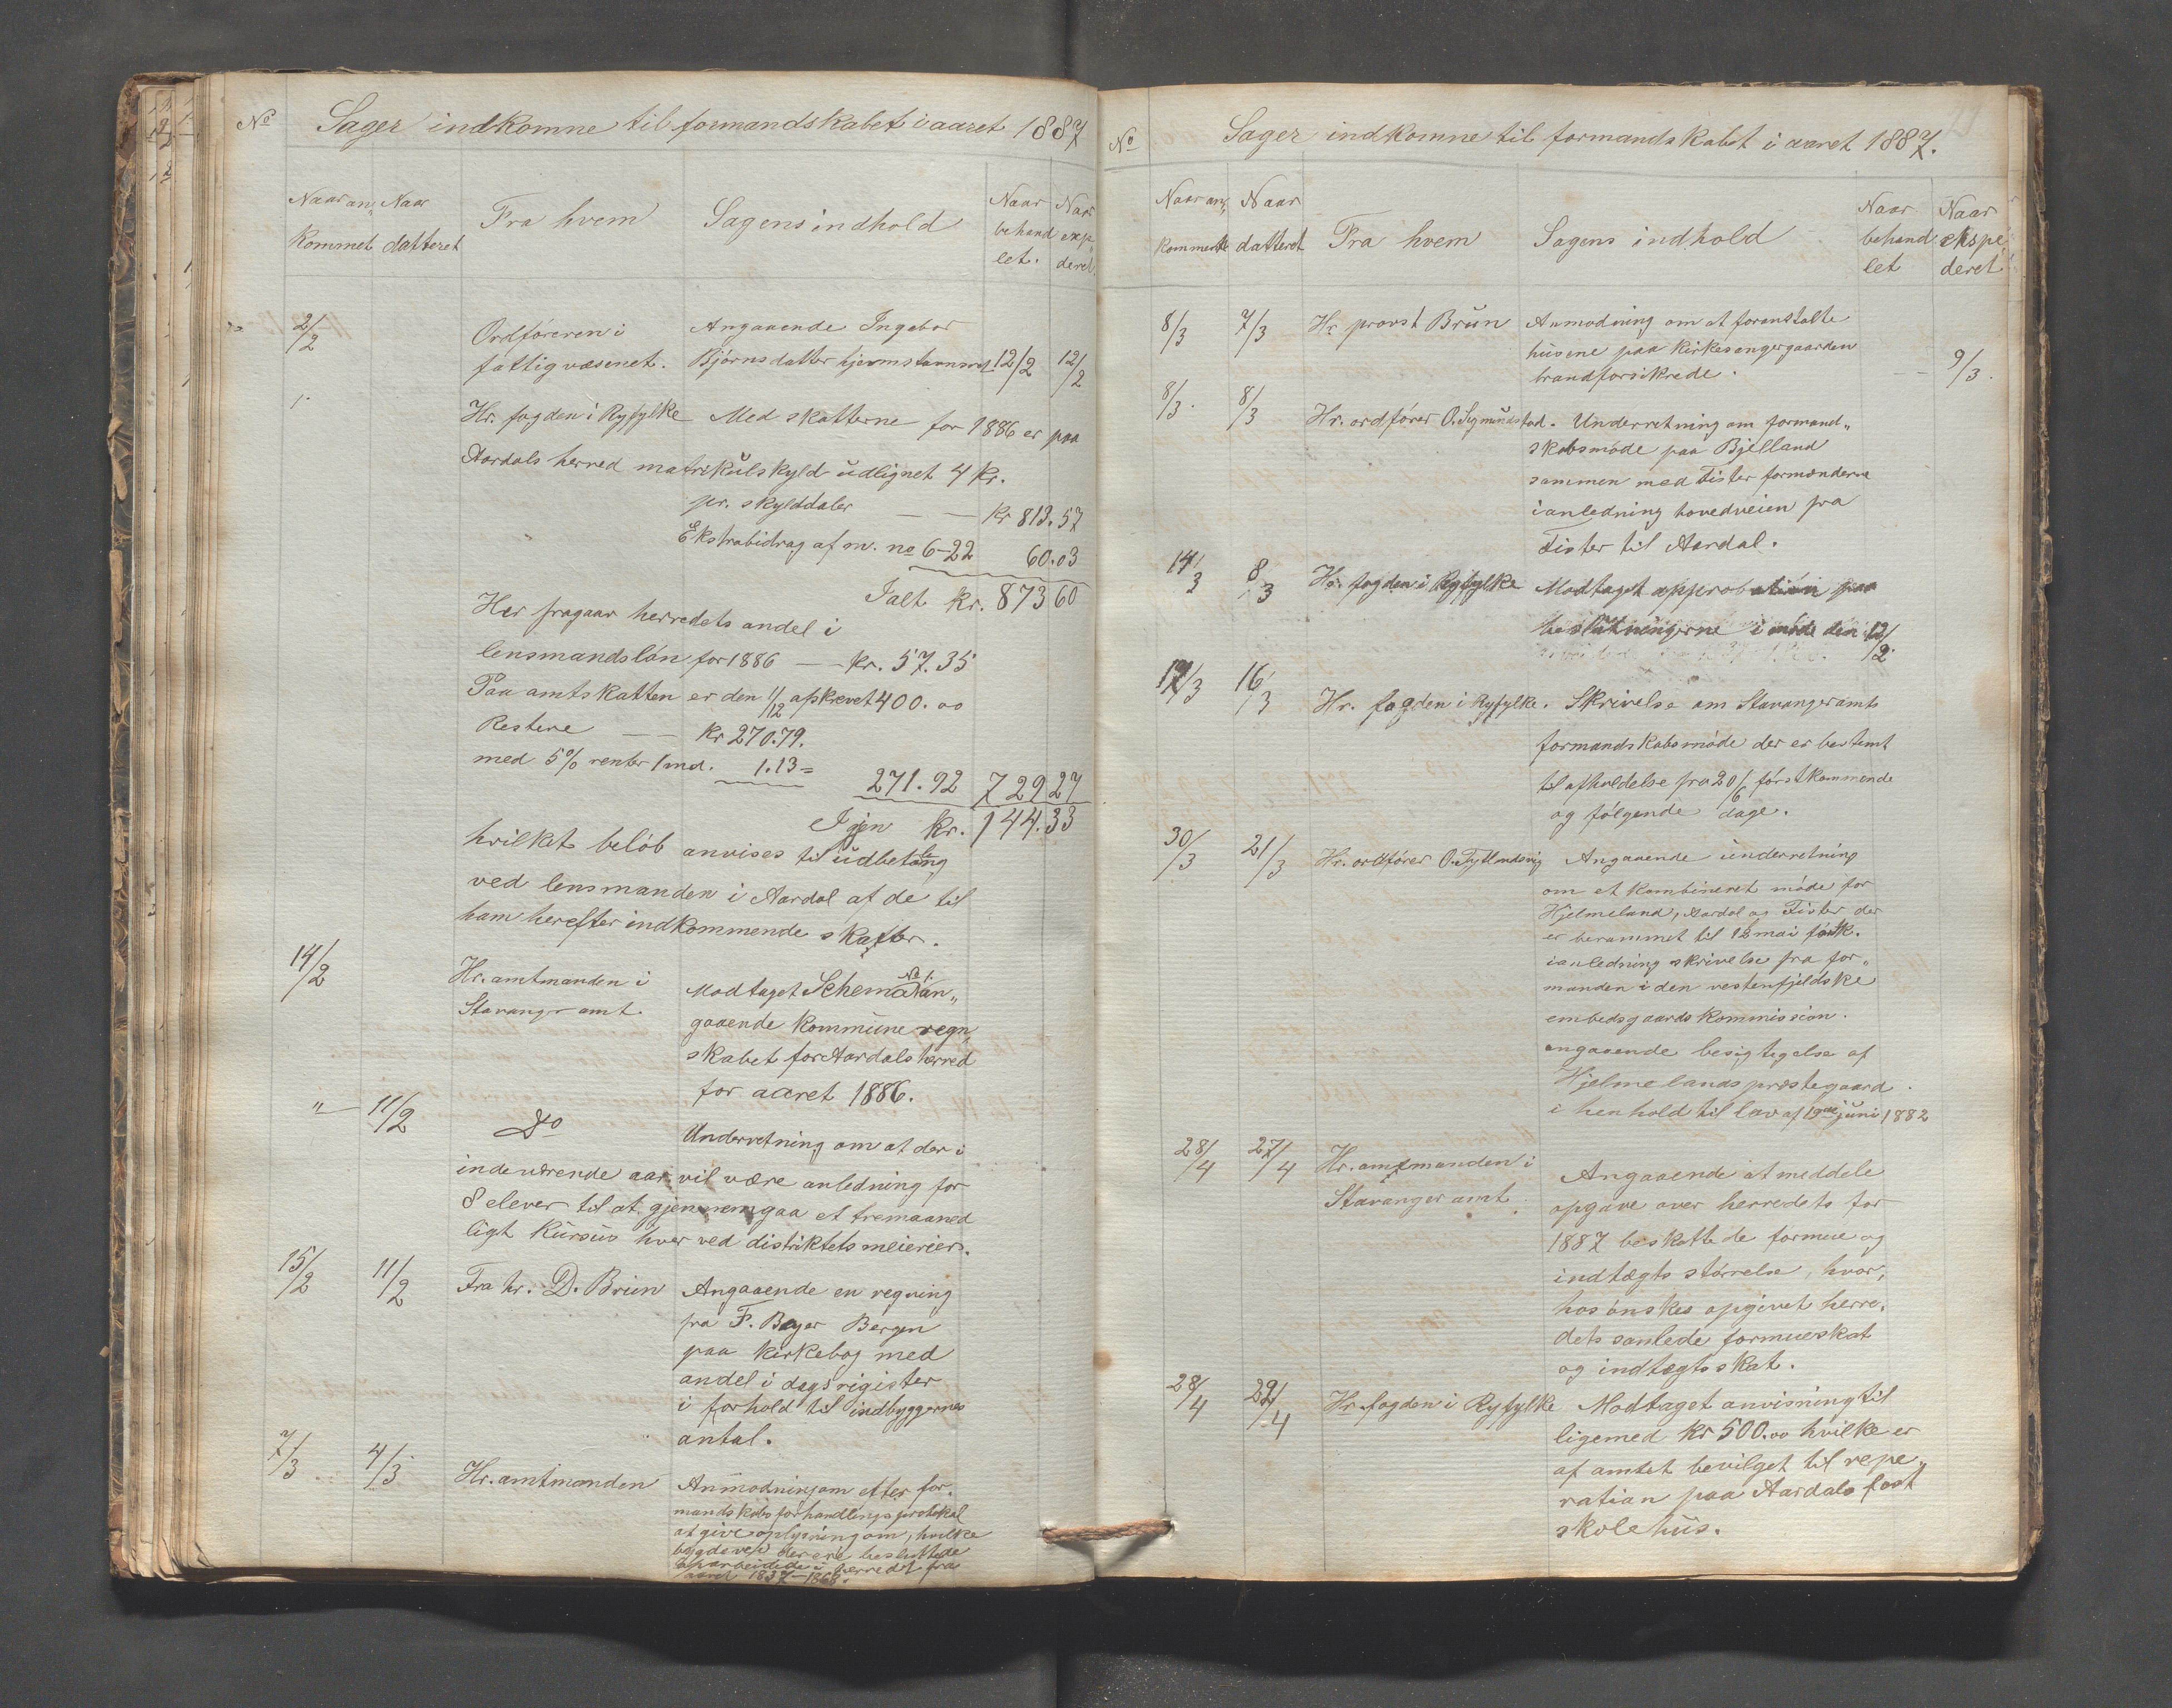 No Sager indkomne til formandskabet i aaret 1887
Naar an„ Naar Fra hvem Sagens indhold Naar Naar
kommet datteret behand exp„
let. deret.
2/2 Ordføreren i Angaaende Ingebor
fattigvæsenet. Bjørnsdatter hjemstavnsret 12/2 12/2
Hr. fogden i Ryfylke Med skatterne for 1886 er paa
Aardals herred matrikulskyld udlignet 4 kr.
pr. skylddaler — — kr 813.57
Ekstrabidrag af m. no 6-22 60.03
Ialt kr. 873 60
Her fragaar herredets andel i
lensmandsløn for 1886 — — kr. 57.35
Paa amtskatten er den 11/12 afskrevet 400.00
Restere — — kr 270.79.
med 5% renter 1 md. 1.13 =
271.92 729 27
Igjen kr. 144.33
hvilket beløb anvises til udbetaling
ved lensmanden i Aardal af de til
ham herefter indkommende skatter.
14/2 Hr. amtmanden i Modtaget Schema No 1. an„
Stavanger amt. gaaende kommune regn„
skabet for Aardals herred
for aaret 1886.
"— 11/2 Do Underretning om at der i
indeværende aar vil være anledning for
8 elever til at gjennemgaa et tremaaned
ligt kursus hver ved distriktets meierier.
15/2 11/2 Fra hr. D. Brun Angaaende en regning
fra F. Beyer Bergen
paa kirkebog med
andel i dagsrigister
i forhold til indbyggernes
antal.
7/3 4/3 Hr. amtmanden Anmodning om efter for„
mandskabsforhandlingsprotokol
at give oplysning om, hvilke
bygdeveje der ere besluttede
oparbeidede i herredet fra
aaret 1837–1868.
No Sager indkomne til formandskabet i aaret 1887.
Naar an„ Naar Fra hvem Sagens indhold Naar Naar
komment datteret behand ekspe„
let deret
8/3 7/3 Hr. provst Brun Anmodning om at foranstalte
husene paa kirkesangergaarden
brandforsikrede. — — 9/3.
8/3. 8/3 Hr. ordfører O. Sigmundstad. Underretning om formand„
skabsmøde paa Bjelland
sammen med Fister formænderne
i anledning hovedveien fra
Fister til Aardal.
14/3 8/3 Hr. fogden i Ryfylke Modtaget approbation paa
beslutningerne i møde den 12/2.
17/3 16/3 Hr. fogden i Ryfylke. Skrivelse om Stavanger amts
formandskabsmøde der er bestemt
til afholdelse fra 20/6 førstkommende
og følgende dage.
30/3 21/3 Hr. ordfører O. Tytlandsvig Angaaende underretning
om et kombineret møde for
Hjelmeland, Aardal og Fister der
er berammet til 12 mai førstk.
i anledning skrivelse fra for„
manden i den vestenfjeldske
embedsgaards kommission.
angaaende besigtigelse af
Hjelmelands prestegaard
i henhold til lov af 19de juni 1882
28/4 27/4 Hr. amtmanden i Angaaende at meddele
Stavanger amt. opgave over herredets for
1887 beskattede formue og
indtægts størrelse, hvor„
hos ønskes opgivet herre„
dets samlede formueskat
og indtægtsskat.
28/4 22/4 Hr. fogden i Ryfylke Modtaget anvisning til
ligemed kr 500.00 hvilke er
af amtet bevilget til repe„
ration paa Aardals fast
skolehus.